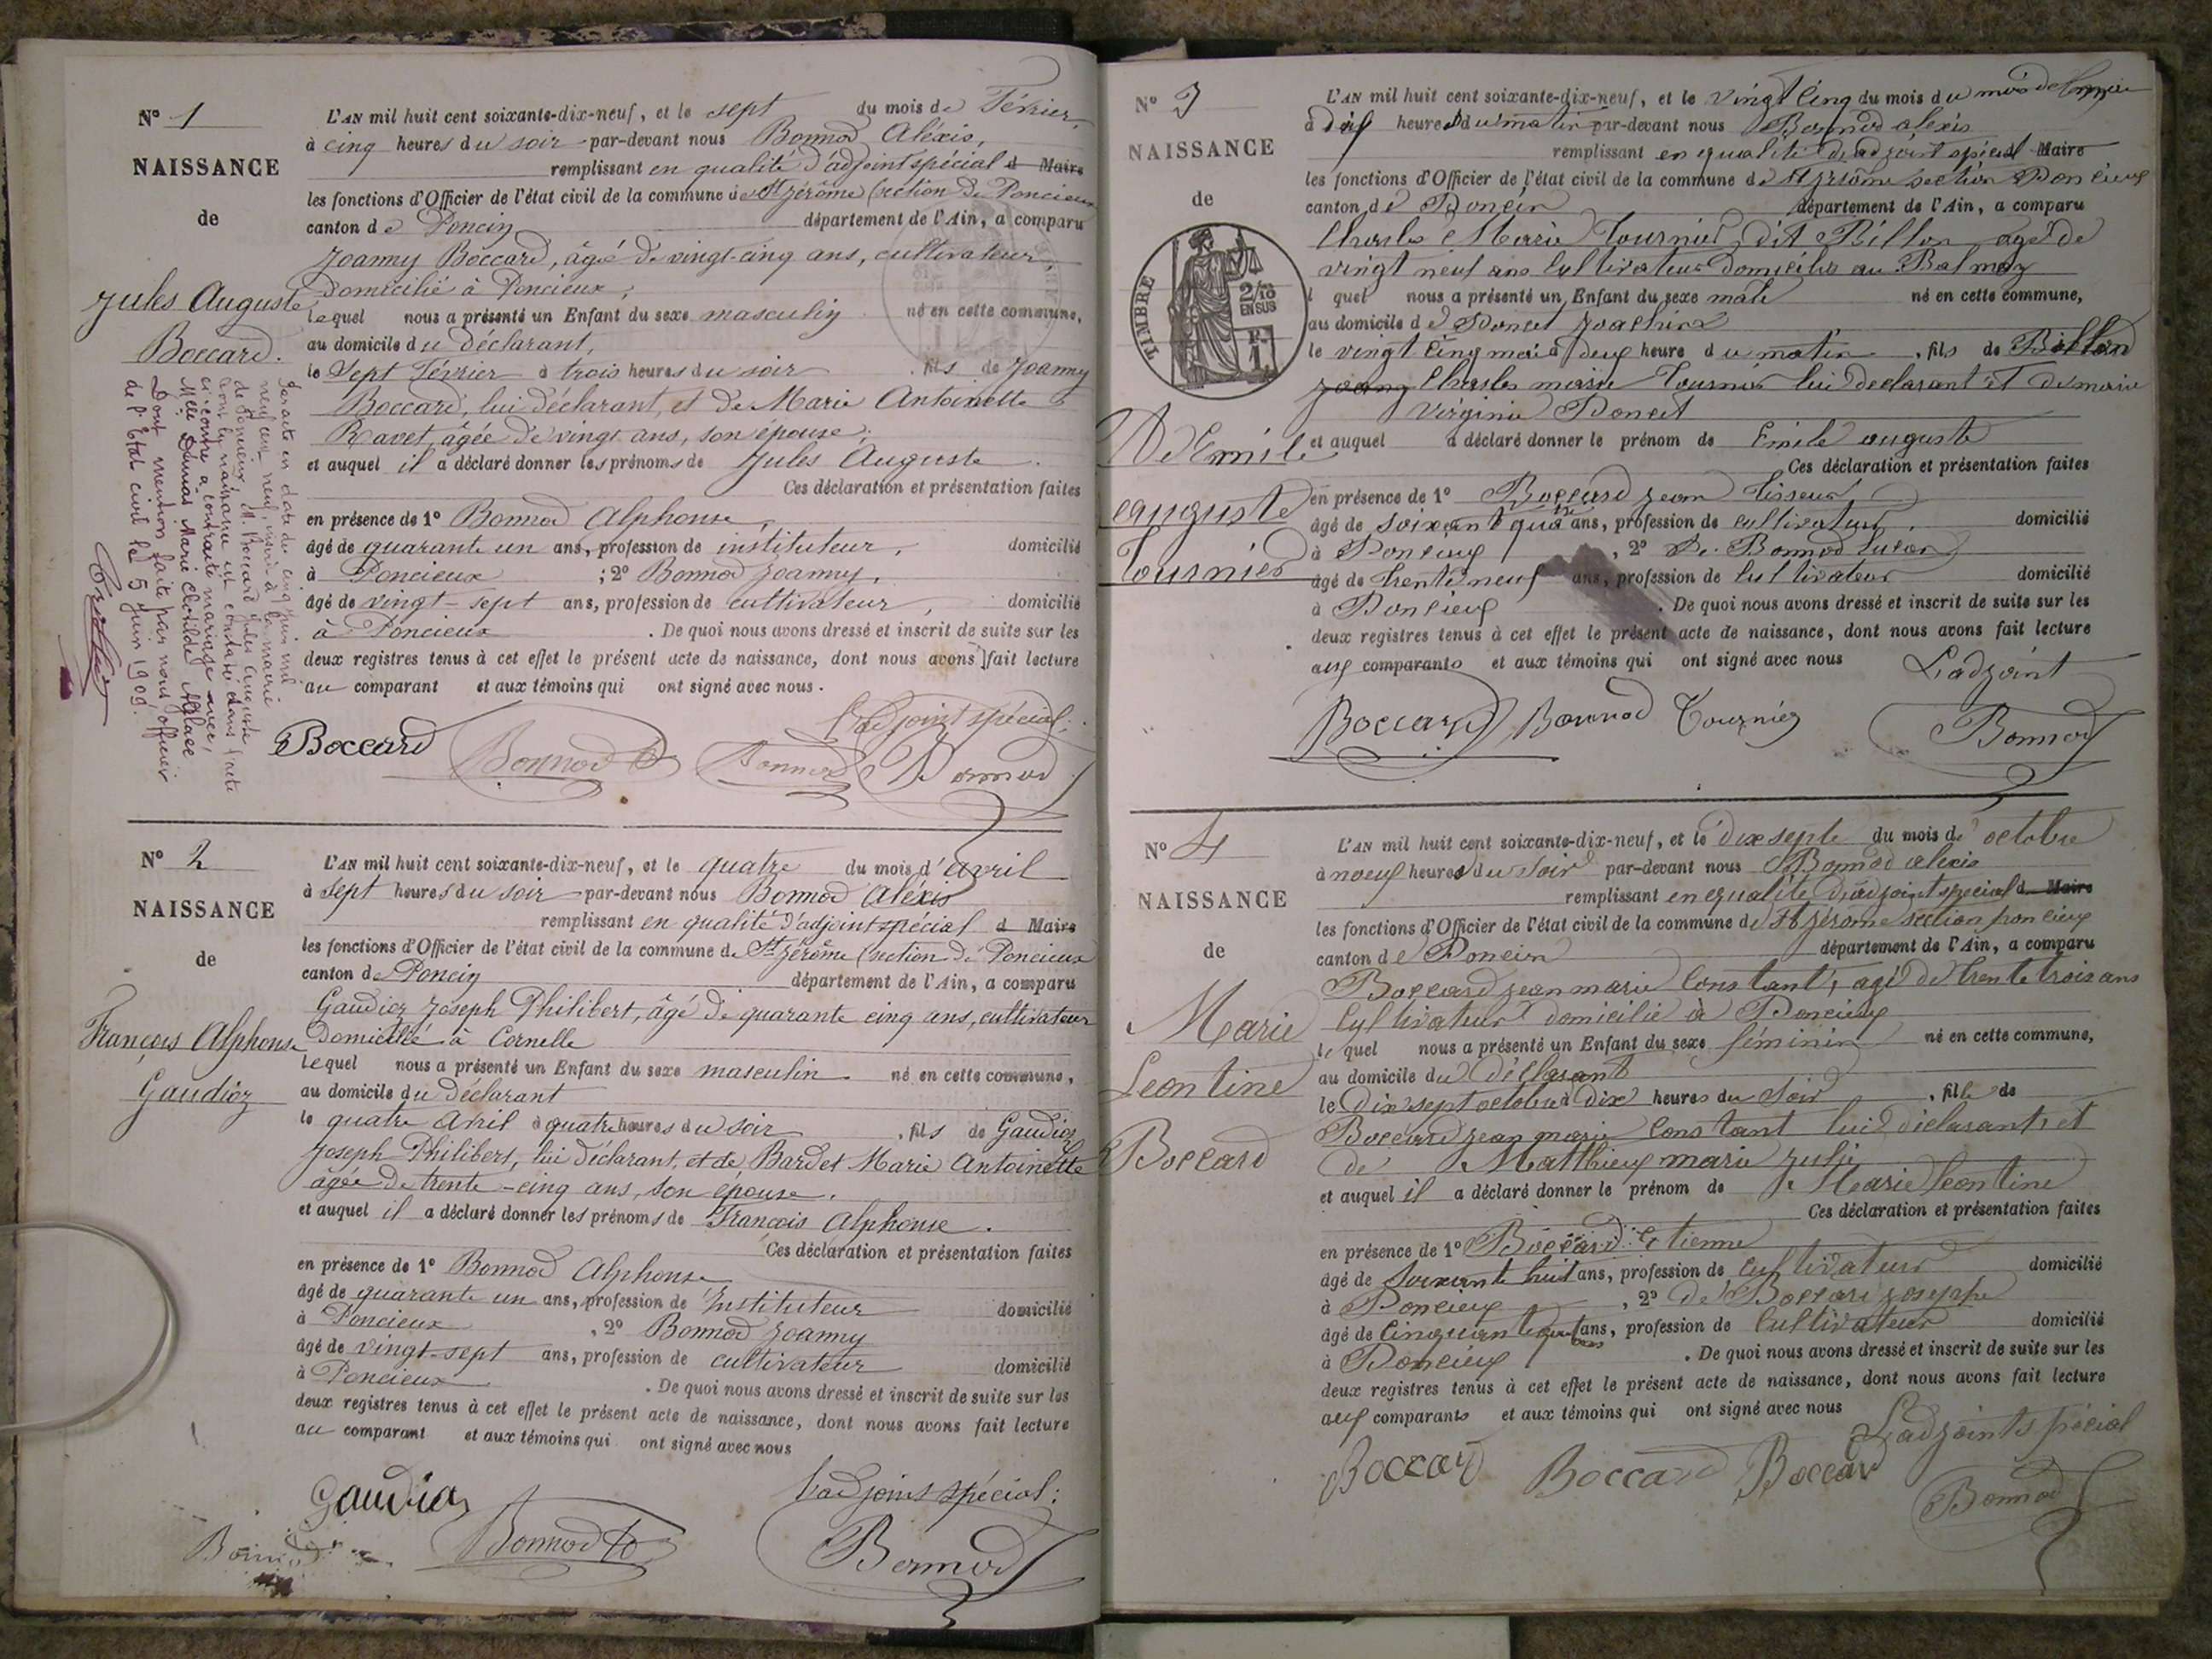 N° 1
NAISSANCE
de
Jules Auguste
Boccard.
L'AN mil huit cent soixante-dix-neuf, et le sept du mois de Février,
à cinq heures du soir par-devant nous Bonnod Aléxis,
remplissant en qualité d'adjoint spécial d Maire
les fonctions d'Officier de l'état civil de la commune de St Jérôme (section de Poncieux
canton de Poncin département de l'Ain, a comparu
Joanny Boccard, âgé de vingt-cinq ans, cultivateur,
domicilié à Poncieux;
Lequel nous a présenté un Enfant du sexe masculin né en cette commune,
au domicile du déclarant,
le Sept Février à trois heures du soir , fils de Joanny
Boccard, lui déclarant, et de Marie Antoinette
Ravet, âgée de vingt ans, son épouse;
et auquel il a déclaré donner les prénoms de Jules Auguste.
Ces déclaration et présentation faites
en présence de 1° Bonnod Alphonse,
âgé de quarante un ans, profession de instituteur, domicilié
à Poncieux ; 2° Bonnod Joanny,
âgé de vingt-sept ans, profession de cultivateur, domicilié
à Poncieux . De quoi nous avons dressé et inscrit de suite sur les
deux registres tenus à cet effet le présent acte de naissance, dont nous avons fait lecture
au comparant et aux témoins qui ont signé avec nous.
L'adjoint spécial:
Boccard Bonnod Bonnod Bonnod
Par acte en date du cinq juin mil
neuf cent neuf, inscrit à la mairie
de Poncieux, M. Boccard Jules Auguste
dont la naissance est constatée dans l'acte
ci-contre a contracté mariage avec,
Melle Dumas Marie Clotilde Aglaé
Dont mention faite par nous officier
de l'État civil le 5 juin 1909.
N° 2
NAISSANCE
de
François Alphonse
Gaudioz
L'AN mil huit cent soixante-dix-neuf, et le quatre du mois d'avril
à sept heures du soir par-devant nous Bonnod Aléxis
remplissant en qualité d'adjoint spécial d Maire
les fonctions d'Officier de l'état civil de la commune de St Jérôme (section de Poncieux
canton de Poncin département de l'Ain, a comparu
Gaudioz Joseph Philibert, âgé de quarante cinq ans, cultivateur
domicilié à Cornelle
Lequel nous a présenté un Enfant du sexe masculin né en cette commune,
au domicile du déclarant
le quatre Avril à quatre heures du soir , fils de Gaudioz
Joseph Philibert, lui déclarant, et de Bardet Marie Antoinette
âgée de trente-cinq ans, son épouse.
et auquel il a déclaré donner les prénoms de François Alphonse.
Ces déclaration et présentation faites
en présence de 1° Bonnod Alphonse
âgé de quarante un ans, profession de Instituteur domicilié
à Poncieux , 2° Bonnod Joanny
âgé de vingt-sept ans, profession de cultivateur domicilié
à Poncieux . De quoi nous avons dressé et inscrit de suite sur les
deux registres tenus à cet effet le présent acte de naissance, dont nous avons fait lecture
au comparant et aux témoins qui ont signé avec nous
L'adjoint spécial:
Gaudioz
Bonnod Bonnod Bonnod
N° 3
NAISSANCE
de
TIMBRE
2/10
EN SUS
Emile
auguste
Tournier
L'AN mil huit cent soixante-dix-neuf, et le vingt cinq du mois du mois de
à dix heures du matin par-devant nous Bonnod alexis
remplissant en qualité d'adjoint spécial Maire
les fonctions d'Officier de l'état civil de la commune de St jérôme section Poncieux
canton de Poncin département de l'Ain, a comparu
Charles Marie Tournier dit Billon agé de
vingt neuf ans Cultivateur domicilié au Balmay
l quel nous a présenté un Enfant du sexe male né en cette commune,
au domicile de Poncet Joachim
le vingt cinq mai à deux heure du matin , fils de Billon
Charles marie Tournier lui declarant et de marie
virginie Poncet
et auquel a déclaré donner le prénom de Emile auguste
Ces déclaration et présentation faites
en présence de 1° Boccard jean Tisseur
âgé de soixante quatre ans, profession de cultivateur domicilié
à Poncieux , 2° De Bonnod
âgé de trente neuf ans, profession de Cultivateur domicilié
à Poncieux . De quoi nous avons dressé et inscrit de suite sur les
deux registres tenus à cet effet le présent acte de naissance, dont nous avons fait lecture
aux comparants et aux témoins qui ont signé avec nous
L'adjoint
Boccard Bonnod Tournier Bonnod
N° 4
NAISSANCE
de
Marie
Leontine
Boccard
L'AN mil huit cent soixante-dix-neuf, et le dix septe du mois de octobre
à noeuf heures du soir par-devant nous Bonnod alexis
remplissant en qualite d'adjoint special d Maire
les fonctions d'Officier de l'état civil de la commune de St jérome section poncieux
canton de Poncin département de l'Ain, a comparu
Boccard jean marie Constant, agé de trente trois ans
Cultivateur domicilié à Poncieux
le quel nous a présenté un Enfant du sexe féminin né en cette commune,
au domicile du déclarant
le dix sept octobre à dix heures du soir , fille de
Boccard jean marie Constant lui déclarant et
de Matthieux marie julie
et auquel il a déclaré donner le prénom de Marie leontine
Ces déclaration et présentation faites
en présence de 1° Boccard Etienne
âgé de soixante huit ans, profession de cultivateur domicilié
à Poncieux , 2° de Boccard joseph
âgé de cinquante ans, profession de Cultivateur domicilié
à Poncieux . De quoi nous avons dressé et inscrit de suite sur les
deux registres tenus à cet effet le présent acte de naissance, dont nous avons fait lecture
aux comparants et aux témoins qui ont signé avec nous
L'adjoint spécial
Boccard Boccard Boccard Bonnod